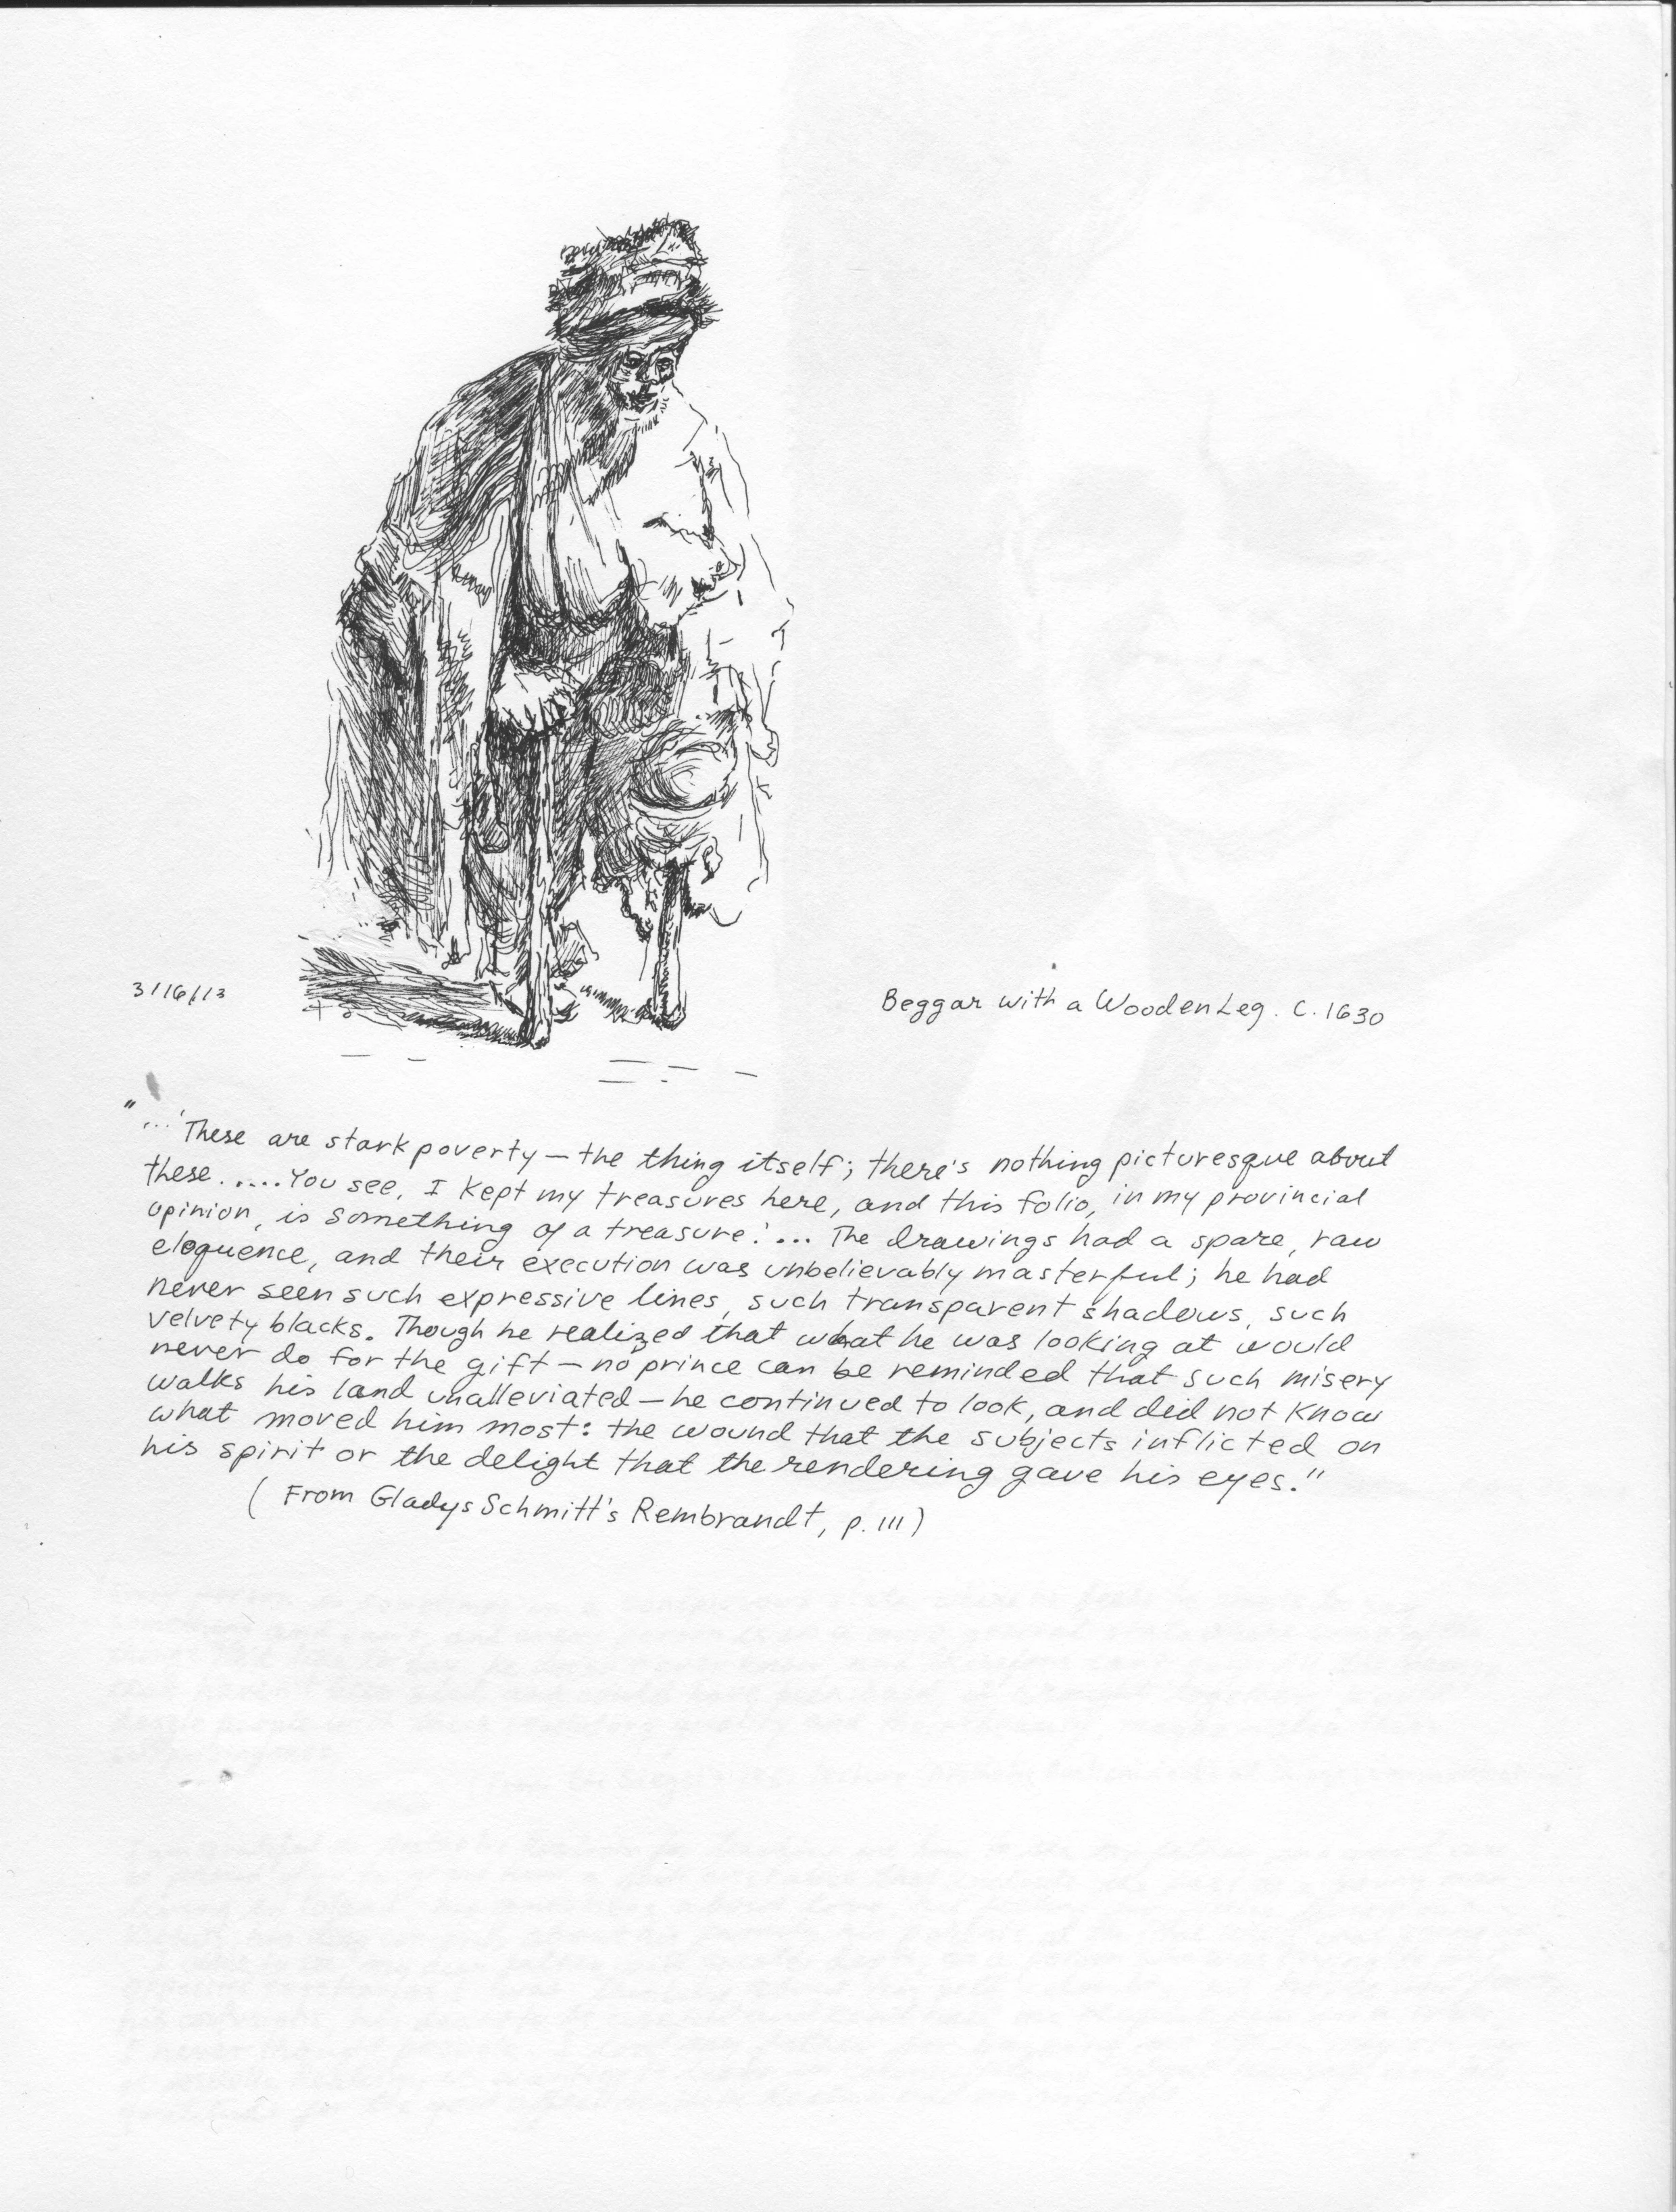 3/16/13
Beggar with a Wooden Leg. C. 1630
"...'These are stark poverty — the thing itself; there's nothing picturesque about
these.....You see, I kept my treasures here, and this folio, in my provincial
opinion, is something of a treasure.'... The drawings had a spare, raw
eloquence, and their execution was unbelievably masterful; he had
never seen such expressive lines, such transparent shadows, such
velvety blacks. Though he realized that what he was looking at would
never do for the gift — no prince can be reminded that such misery
walks his land unalleviated — he continued to look, and did not know
what moved him most: the wound that the subjects inflicted on
his spirit or the delight that the rendering gave his eyes."
(From Gladys Schmitt's Rembrandt, p. 111)